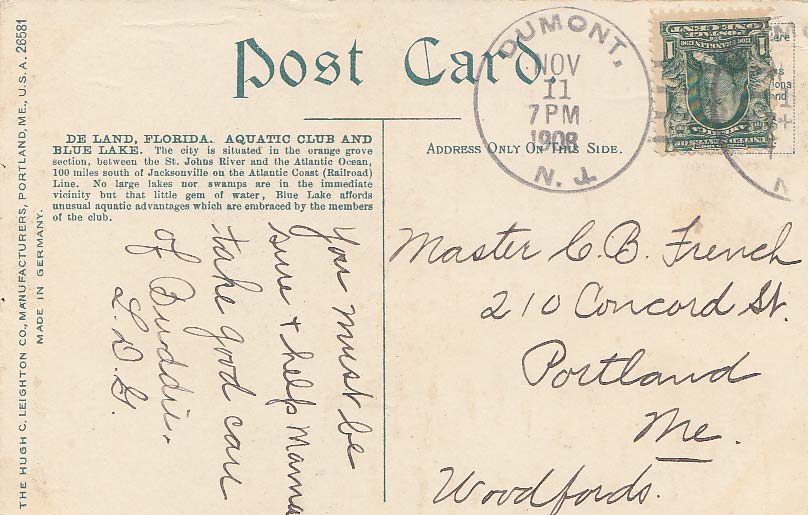 Post Card.
DUMONT,
NOV
11
7 PM
1908
N. J.
1
1
DE LAND, FLORIDA. AQUATIC CLUB AND
BLUE LAKE. The city is situated in the orange grove
section, between the St. Johns River and the Atlantic Ocean,
100 miles south of Jacksonville on the Atlantic Coast (Railroad)
Line. No large lakes nor swamps are in the immediate
vicinity but that little gem of water, Blue Lake affords
unusual aquatic advantages which are embraced by the members
of the club.
ADDRESS ONLY ON THIS SIDE.
You must be
sure + help Mama
take good care
of Buddie.
L. D. G.
Master C. B. French
210 Concord St.
Portland
Me.
Woodfords.
THE HUGH C. LEIGHTON CO., MANUFACTURERS, PORTLAND, ME., U.S.A. 26581
MADE IN GERMANY.